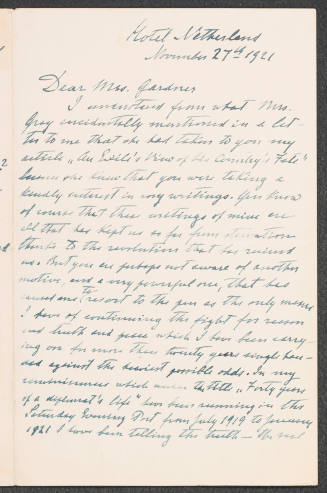 Hotel Netherland
November 27th 1921
Dear Mrs. Gardner
I understand from what Mrs.
Gray incidentally mentioned in a let-
ter to me that she had taken to you my
article „An Exile's View of his Country's Fate"
because she knew that you were taking a
kindly interest in my writings. You know
of course that these writings of mine are
all that has kept us so far from starvation
thanks to the revolution that has ruined
us. But you are perhaps not aware of another
motive, and a very powerful one, that has
caused me to resort to the pen as the only means
I have of continuing the fight for reason
and truth and peace which I have been carry-
ing on for more than twenty years single han-
ded against the heaviest possible odds. In my
reminiscences which under the title „Forty years
of a diplomat's life" have been running in the
Saturday Evening Post from July 1919 to January
1921 I have been telling the truth – the